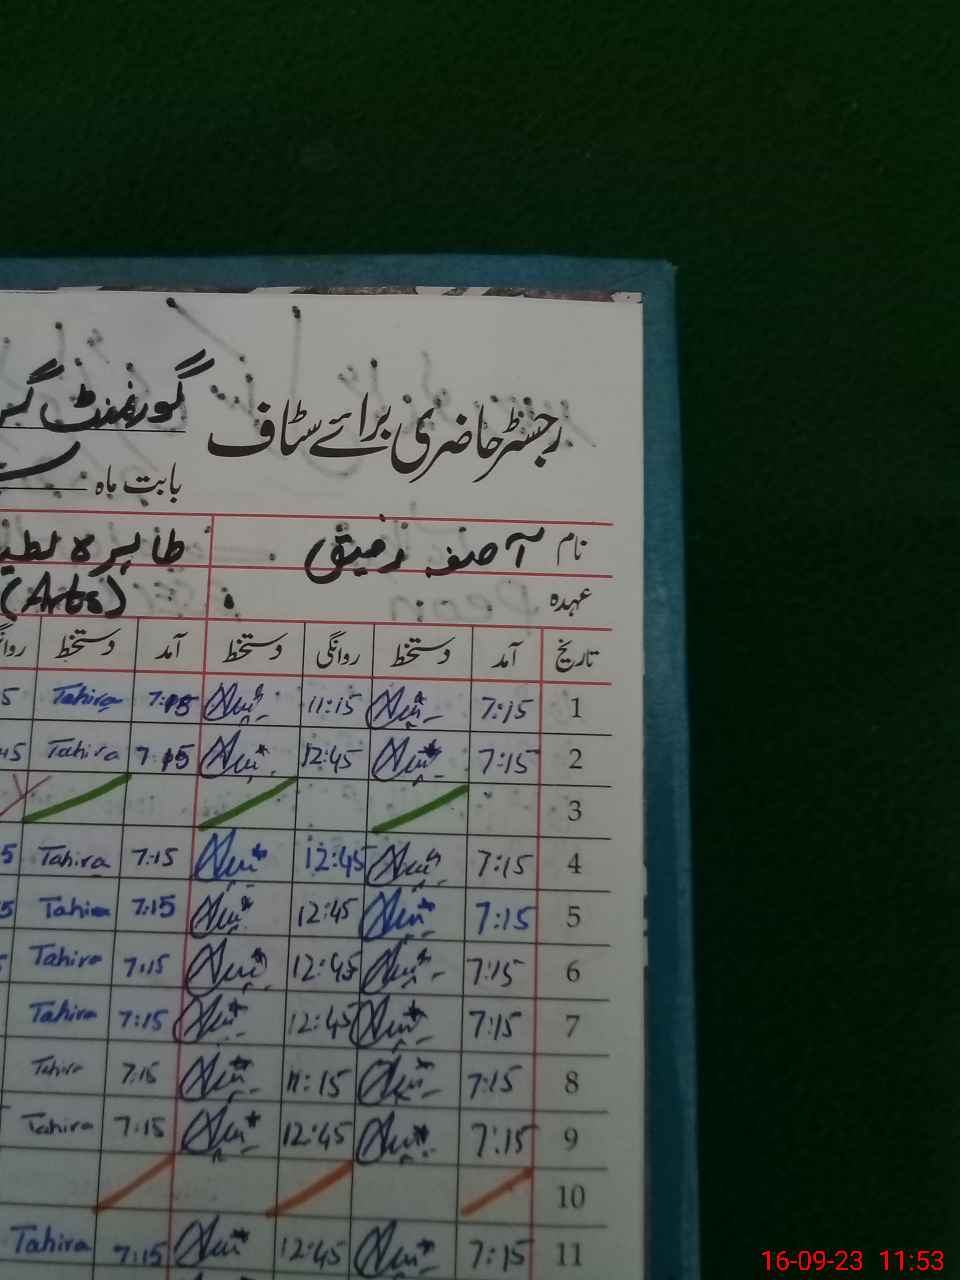 رجسٹر حاضری برائے سٹاف گورنمنٹ
بابت ماہ
نام آصفہ رفیق طاہرہ
عہدہ (Arts)
تاریخ آمد دستخط روانگی دستخط آمد دستخط
1 7:15 11:15 7:15 Tahira
2 7:15 12:45 7:15 Tahira
3
4 7:15 12:45 7:15 Tahira
5 7:15 12:45 7:15 Tahira
6 7:15 12:45 7:15 Tahira
7 7:15 12:45 7:15 Tahira
8 7:15 11:15 7:15 Tahira
9 7:15 12:45 7:15 Tahira
10
11 7:15 12:45 7:15 Tahira
16-09-23 11:53